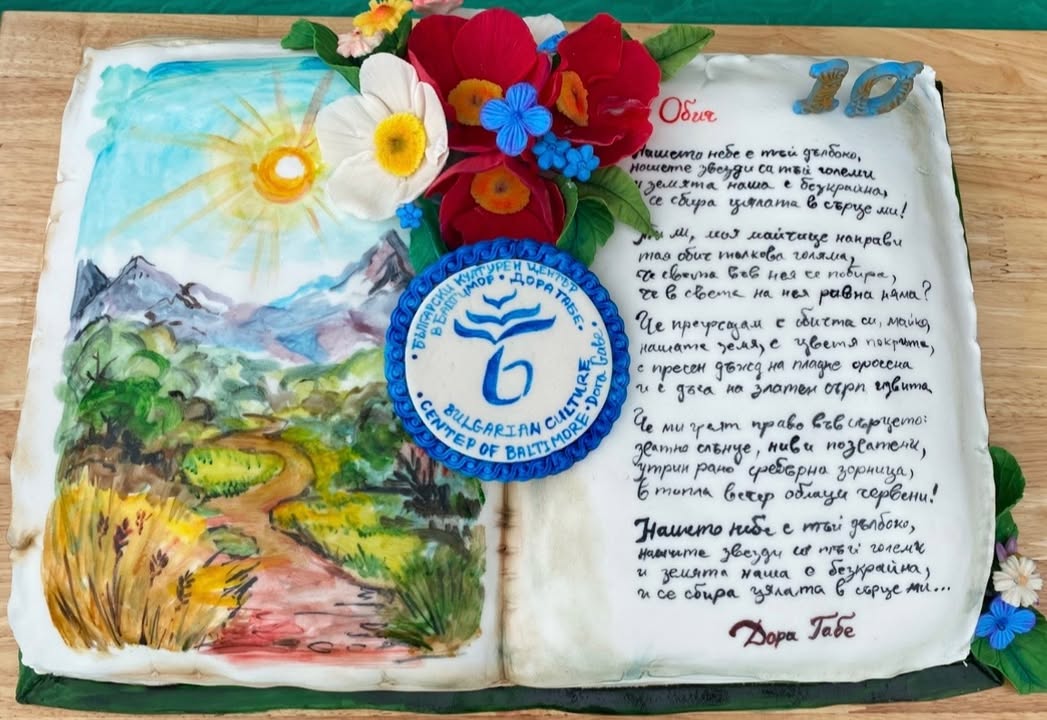 10
Обич
Нашето небе е тъй дълбоко,
нашете звезди са тъй големи
и земята наша е безкрайна,
а се сбира цялата в сърце ми!
Ти ли, моя майчице направи
тая обич толкова голяма,
че света във нея се побира,
че в света на нея равна няма?
Че прегръщам с обичта си, майко,
нашате земя, с цветя покрита,
с пресен дъжд на пладне оросена
и с дъга на златен сърп извита
Че ми греят право във сърцето:
златно слънце, ниви позлатени,
утрин рано сребърна зорница,
в топла вечер облаци червени!
Нашето небе е тъй дълбоко,
нашите звезди са тъй големи
и земята наша е безкрайна,
и се сбира цялата в сърце ми...
Дора Габе
• БЪЛГАРСКИ КУЛТУРЕН ЦЕНТЪР
В БАЛТИМОР • ДОРА ГАБЕ •
BULGARIAN CULTURE
• CENTER OF BALTIMORE • Dora Gabe •